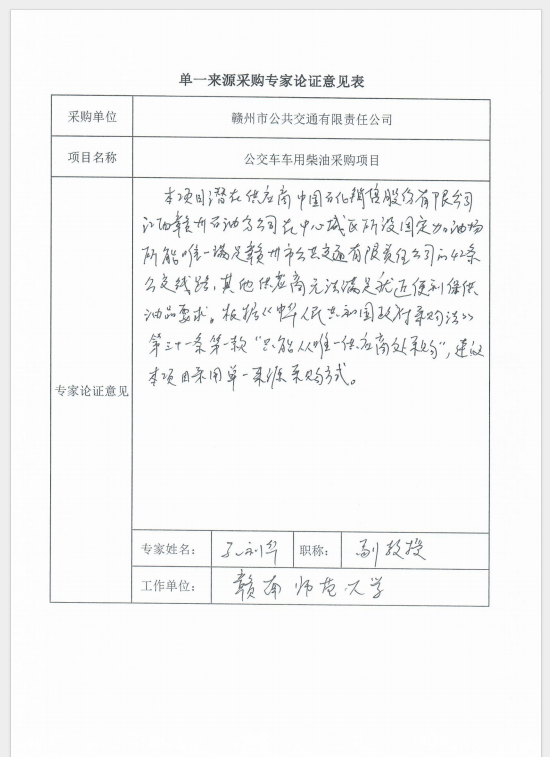 单一来源采购专家论证意见表
采购单位 赣州市公共交通有限责任公司
项目名称 公交车车用柴油采购项目
专家论证意见
本项目潜在供应商中国石化销售股份有限公司
江西赣州石油分公司在中心城区所设固定加油场
所能唯一满足赣州市公共交通有限责任公司的42条
公交线路，其他供应商无法满足就近便利保供
油品要求。根据《中华人民共和国政府采购法》
第三十一条第一款“只能从唯一供应商处采购”，建议
本项目采用单一来源采购方式。
专家姓名： 孔利华 职称： 副教授
工作单位： 赣南师范大学